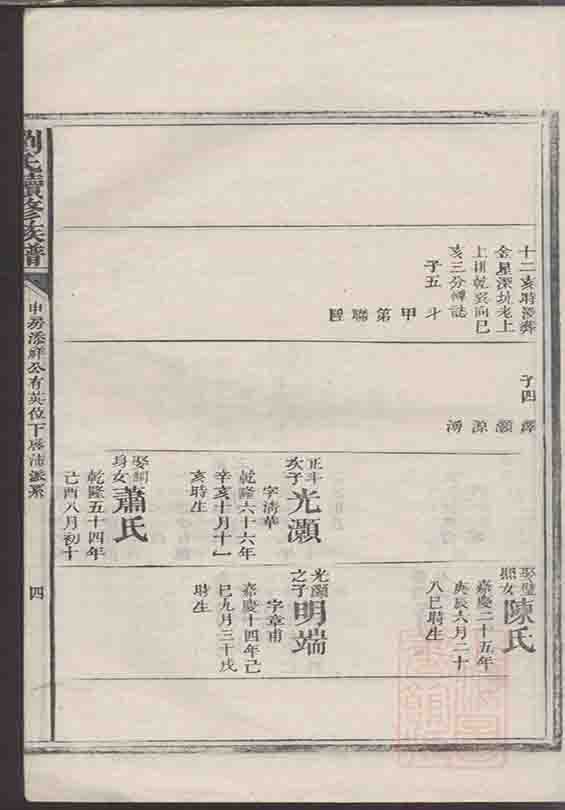 十二亥時歿葬
金星深坵老上
上排乾巽向巳
亥三分碑誌
子五
斗
甲
第
聯
子四
灝
源
湧
正斗
次子
光灝
字清華
乾隆六十六年
辛亥十月十一
亥時生
身女
蕭氏
乾隆五十四年
己酉八月初十
陳氏
嘉慶二十五年
庚辰六月二十
八巳時生
光灝
之子
明端
字章甫
嘉慶十四年己
巳九月三十戌
時生
劉氏續修族譜
申房添祥公有英位下廕沛派系
四